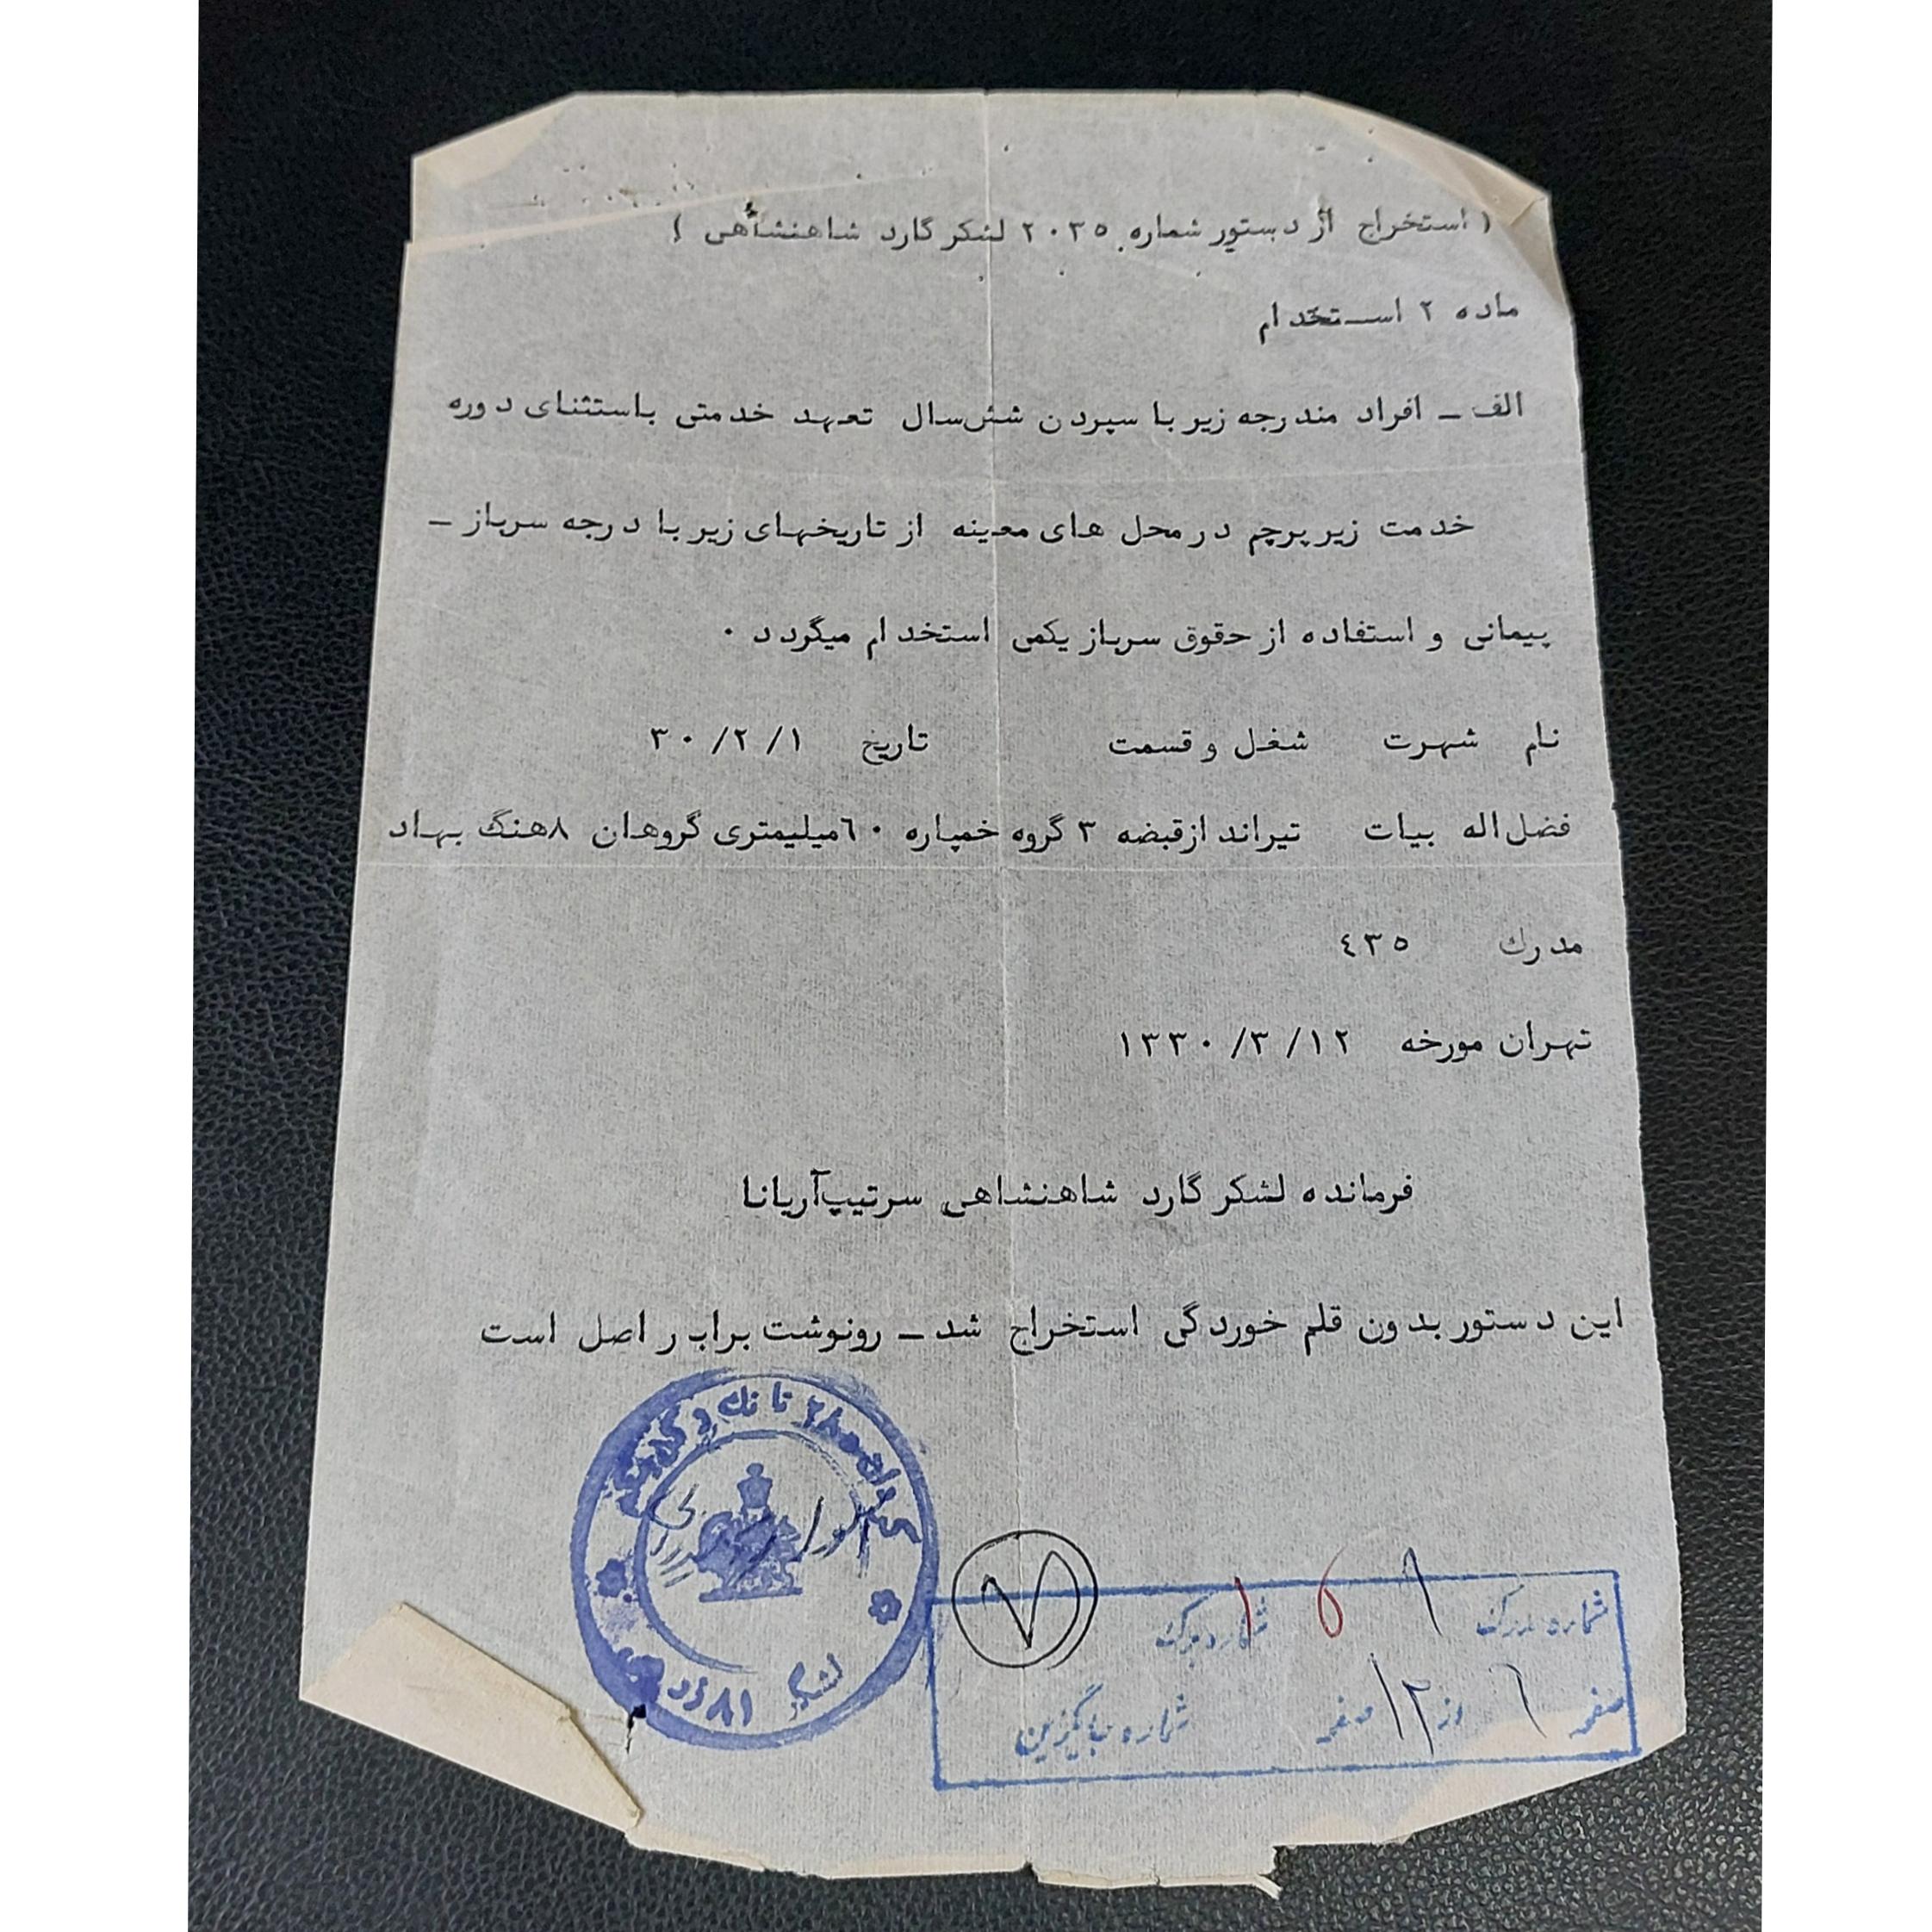 ( استخراج از دستور شماره ۲۰۳۵ لشکر گارد شاهنشاهی )
ماده ۲ استخدام
الف ـ افراد مندرجه زیر با سپردن شش‌سال تعهد خدمتی باستثنای دوره
خدمت زیر پرچم در محل های معینه از تاریخهای زیر با درجه سرباز ـ
پیمانی و استفاده از حقوق سرباز یکمی استخدام میگردد ۰
نام شهرت شغل و قسمت تاریخ ۳۰/۲/۱
فضل‌اله بیات تیرانداز قبضه ۳ گروه خمپاره ۶۰ میلیمتری گروهان ۸ هنگ بهاد
مدرك ٤۳۵
تهران مورخه ۱۳۳۰/۳/۱۲
فرمانده لشکر گارد شاهنشاهی سرتیپ آریانا
این دستور بدون قلم خوردگی استخراج شد ـ رونوشت برابر اصل است
گردان ۲۸۵ تانك و
لشگر ۸۱ زرهی
۷
شماره مدرک ۹ شماره برگ
صفحه ۱ از ۱۲ صفحه شماره جایگزین